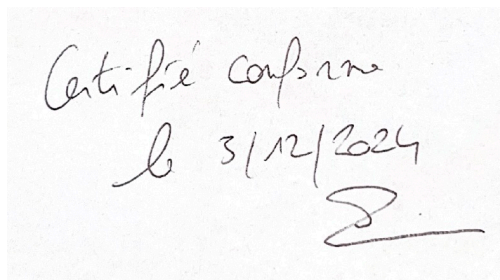 Certifié conforme
le 3/12/2024